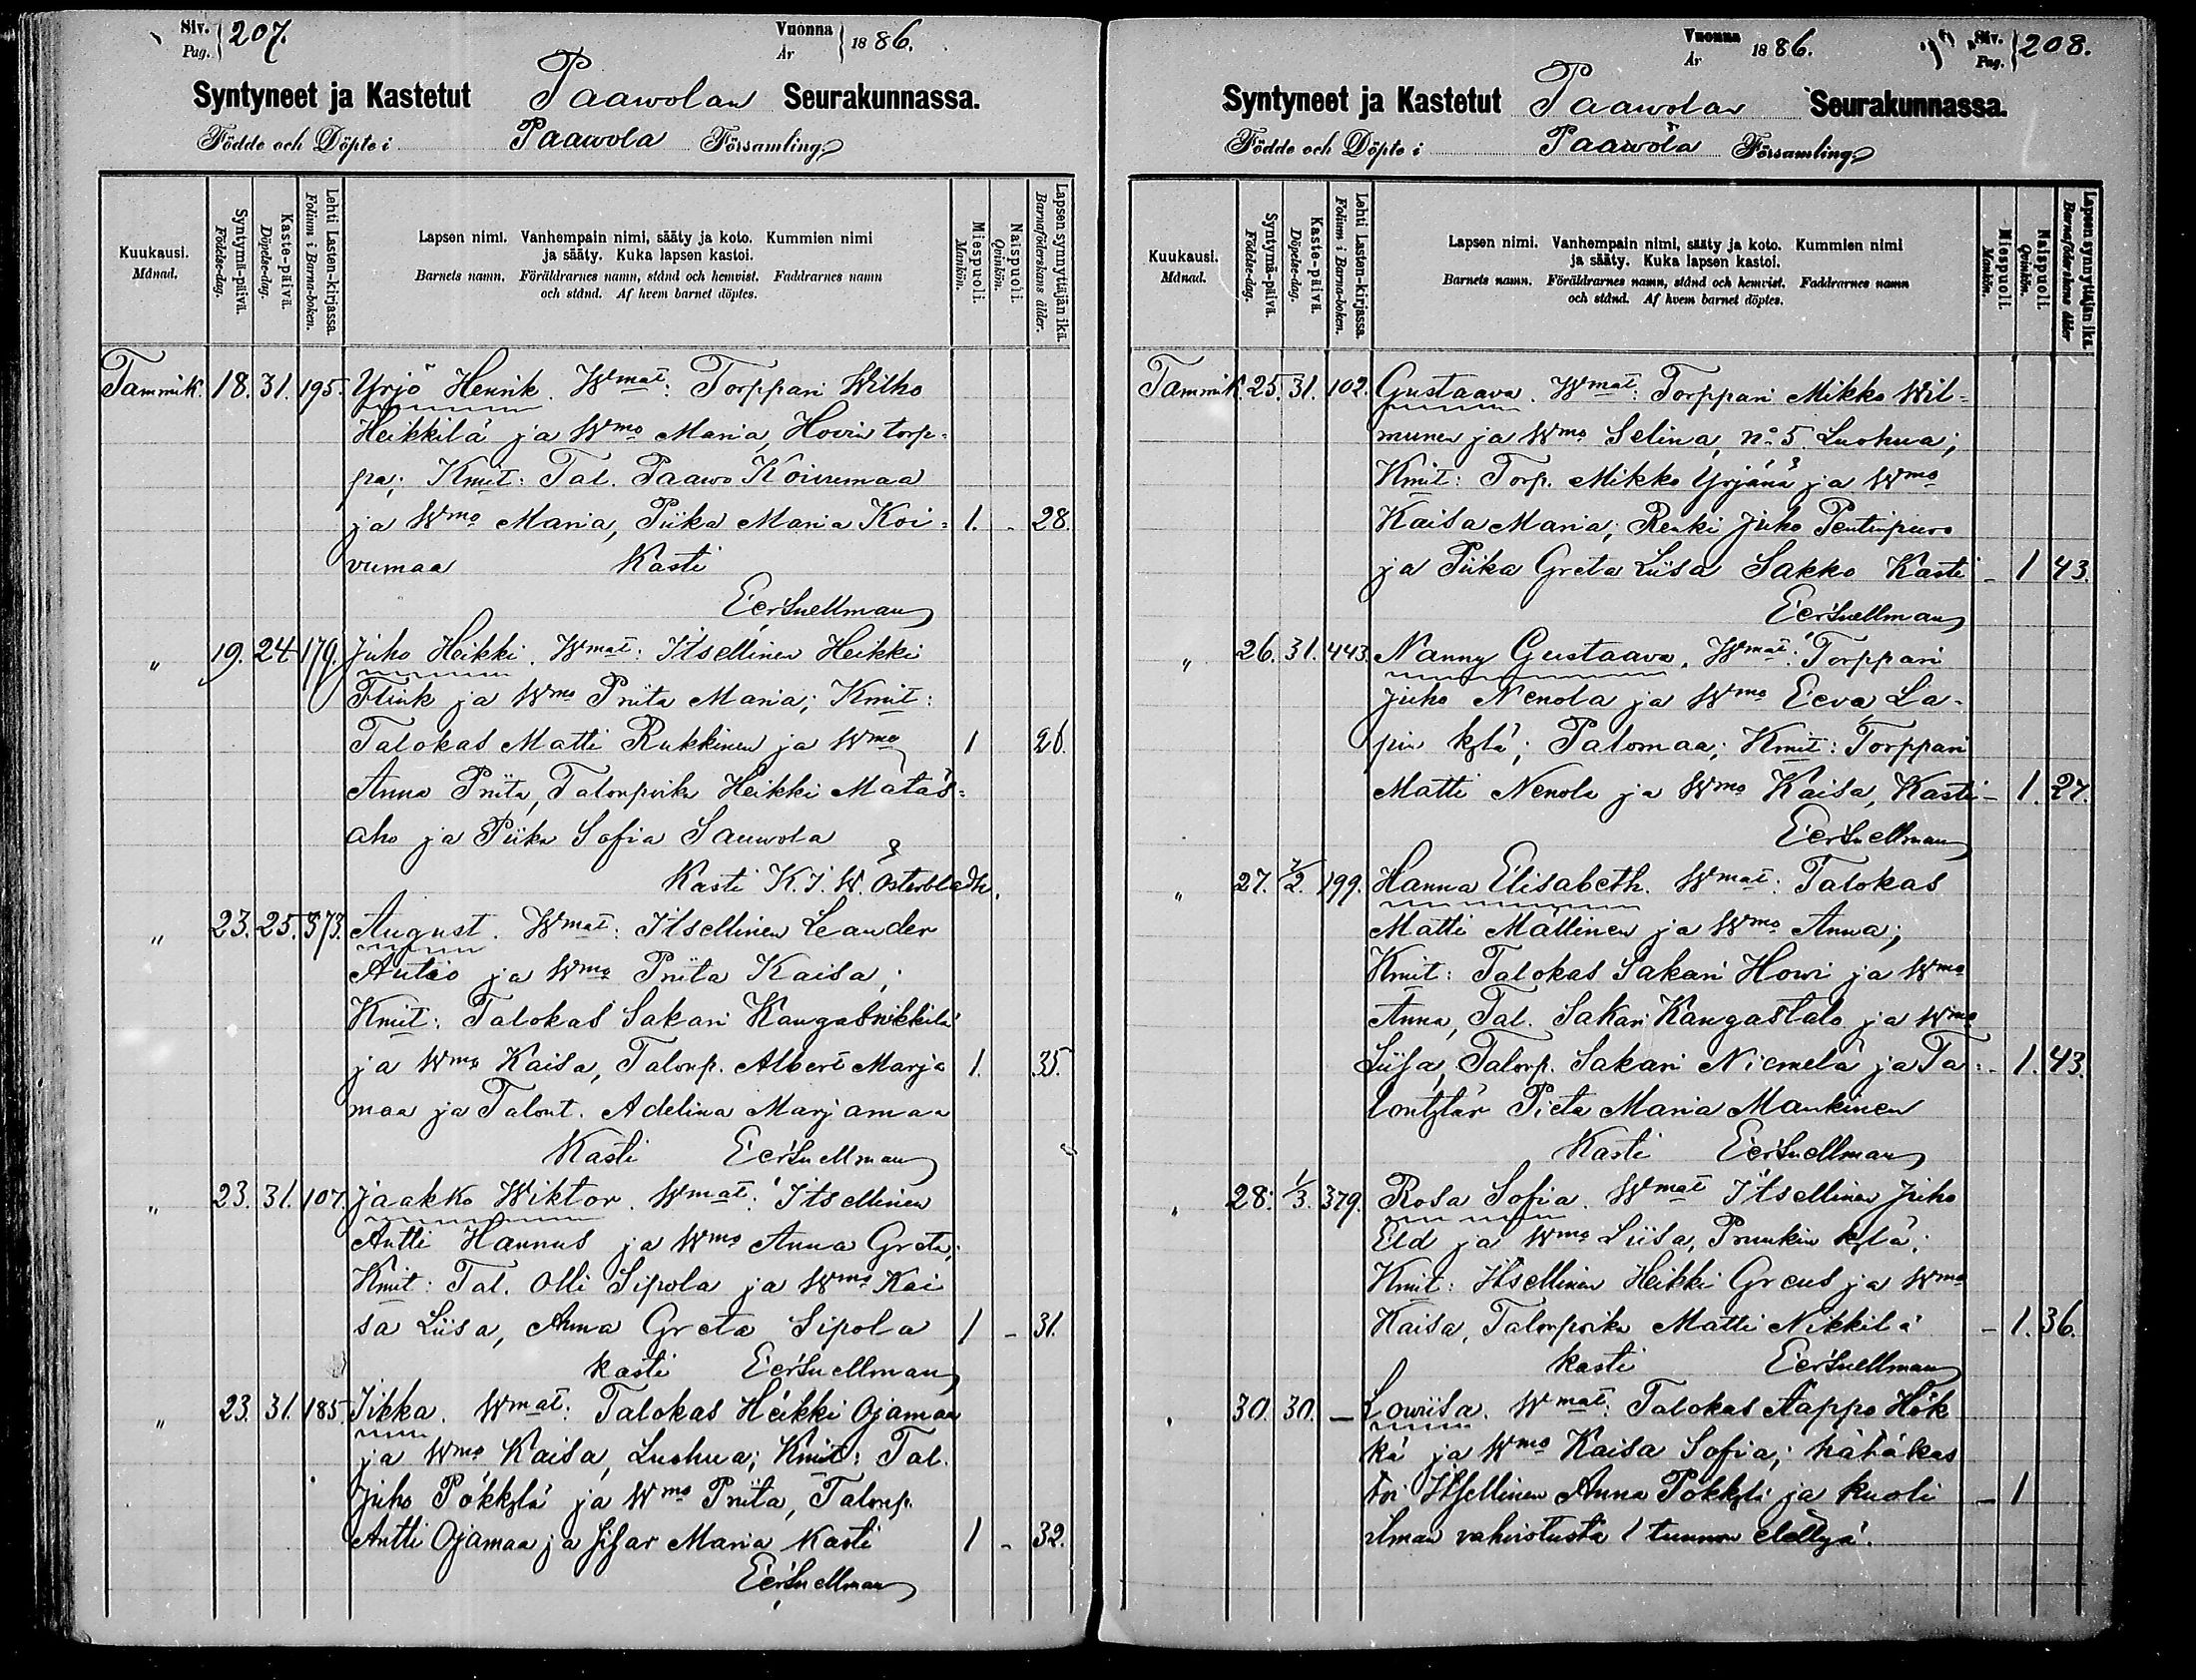 Siv. Pag. 207. Vuonna År 1886.
Syntyneet ja Kastetut Paawolan Seurakunnassa.
Födde och Döpte i Paawola Församling
Kuukausi. Månad.
Syntymä-päivä. Födelse-dag.
Kaste-päivä. Döpelse-dag.
Lehti Lasten-kirjassa. Folium i Barna-boken.
Lapsen nimi. Vanhempain nimi, sääty ja koto. Kummien nimi
ja sääty. Kuka lapsen kastoi.
Barnets namn. Föräldrarnes namn, stånd och hemvist. Faddrarnes namn
och stånd. Af hvem barnet döptes.
Miespuoli. Mankön.
Naispuoli. Qvinkön.
Lapsen synnyttäjän ikä. Barnaföderskans ålder.
Tammik. 18. 31. 195. Yrjö Henrik. Wmat: Torppari Wilho
Heikkilä ja Wmo Maria, Hovin torp-
pa; Kmit: Tal. Paawo Koivumaa
ja Wmo Maria, Piika Maria Koi- 1. - 28.
vumaa Kasti
EerSnellman
" 19. 24 179. Juho Heikki. Wmat: Itsellinen Heikki
Flink ja Wmo Priita Maria; Kmit:
Talokas Matti Rukkinen ja Wmo 1 26.
Anna Priita, Talonpoika Heikki Matas-
aho ja Piika Sofia Sauwola
Kasti K. J. W. Österbladh.
" 23. 25. 373. August. Wmat: Itsellinen Leander
Autio ja Wmo Priita Kaisa;
Kmit: Talokas Sakari Kangasnikkilä
ja Wmo Kaisa, Talonp. Albert Marja 1. 35.
maa ja Talont. Adelina Marjamaa
Kasti EerSnellman
" 23. 31. 107. Jaakko Wiktor. Wmat: Itsellinen
Antti Hannus ja Wmo Anna Greta;
Kmit: Tal. Olli Sipola ja Wmo Kai
sa Liisa, Anna Greta Sipola 1 - 31.
kasti EerSnellman
" 23. 31. 185. Iikka. Wmat: Talokas Heikki Ojamaa
ja Wmo Kaisa, Luohua; Kmit: Tal.
Juho Pökkylä ja Wmo Priita, Talonp.
Antti Ojamaa ja Sisar Maria Kasti 1 - 32.
EerSnellman
Vuonna År 1886. Siv. Pag. 208.
Syntyneet ja Kastetut Paawolan Seurakunnassa.
Födde och Döpte i Paawola Församling
Kuukausi. Månad.
Syntymä-päivä. Födelse-dag.
Kaste-päivä. Döpelse-dag.
Lehti Lasten-kirjassa. Folium i Barna-boken.
Lapsen nimi. Vanhempain nimi, sääty ja koto. Kummien nimi
ja sääty. Kuka lapsen kastoi.
Barnets namn. Föräldrarnes namn, stånd och hemvist. Faddrarnes namn
och stånd. Af hvem barnet döptes.
Miespuoli. Mankön.
Naispuoli. Qvinkön.
Lapsen synnyttäjän ikä. Barnaföderskans ålder
Tammik. 25. 31. 102. Gustaava. Wmat: Torppari Mikko Wil-
munen ja Wmo Selina, no 5 Luohua;
Kmit: Torp. Mikko Yrjänä ja Wmo
Kaisa Maria; Renki Juho Pentinpuro
ja Piika Greta Liisa Sakko Kasti - 1 43.
EerSnellman
" 26. 31. 443. Nanny Gustaava. Wmat: Torppari
Juho Nenola ja Wmo Eeva La-
pin kylä; Palomaa; Kmit: Torppari
Matti Nenola ja Wmo Kaisa, Kasti - 1. 27.
EerSnellman
" 27. 7/2. 199. Hanna Elisabeth. Wmat: Talokas
Matti Mattinen ja Wmo Anna;
Kmit: Talokas Sakari Howi ja Wmo
Anna, Tal. Sakari Kangastalo ja Wmo
Liisa, Talonp. Sakari Niemelä ja Ta- - 1. 43.
lontytär Pieta Maria Mankinen
Kasti EerSnellman
" 28. 1/3. 379. Rosa Sofia. Wmat Itsellinen Juho
Eld ja Wmo Liisa, Pruukin kylä;
Kmit: Itsellinen Heikki Greus ja Wmo
Kaisa, Talonpoika Matti Nikkilä - 1. 36.
kasti EerSnellman
" 30. 30. — Lowiisa. Wmat: Talokas Aappo Hök
kä ja Wmo Kaisa Sofia; hätäkas
toi Itsellinen Anna Pökkyli ja kuoli - 1
ilman vahvistusta 1 tunnon elettyä.